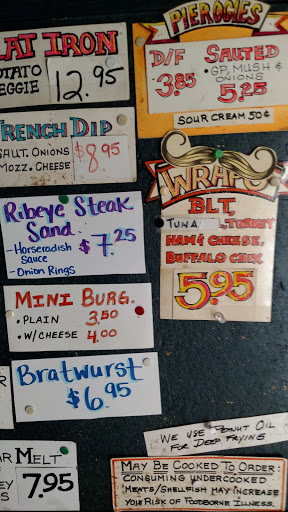 LAT IRON
POTATO
VEGGIE
12.95
FRENCH DIP
SAUT. ONIONS
MOZZ. CHEESE
$8.95
Ribeye Steak
Sand.
- Horseradish
Sauce
- Onion Rings
$7.25
MINI BURG.
• PLAIN 3.50
• W/CHEESE 4.00
Bratwurst
$6.95
AR MELT
7.95
PIEROGIES
D/F
3.85
SAUTED
• GP, MUSH &
ONIONS
5.25
SOUR CREAM 50¢
WRAPS
BLT,
TUNA, TURKEY
HAM & CHEESE,
BUFFALO CHIX
5.95
WE USE PEANUT OIL
FOR DEEP FRYING
MAY BE COOKED TO ORDER:
CONSUMING UNDERCOOKED
MEATS/SHELLFISH MAY INCREASE
YOUR RISK OF FOODBORNE ILLNESS.